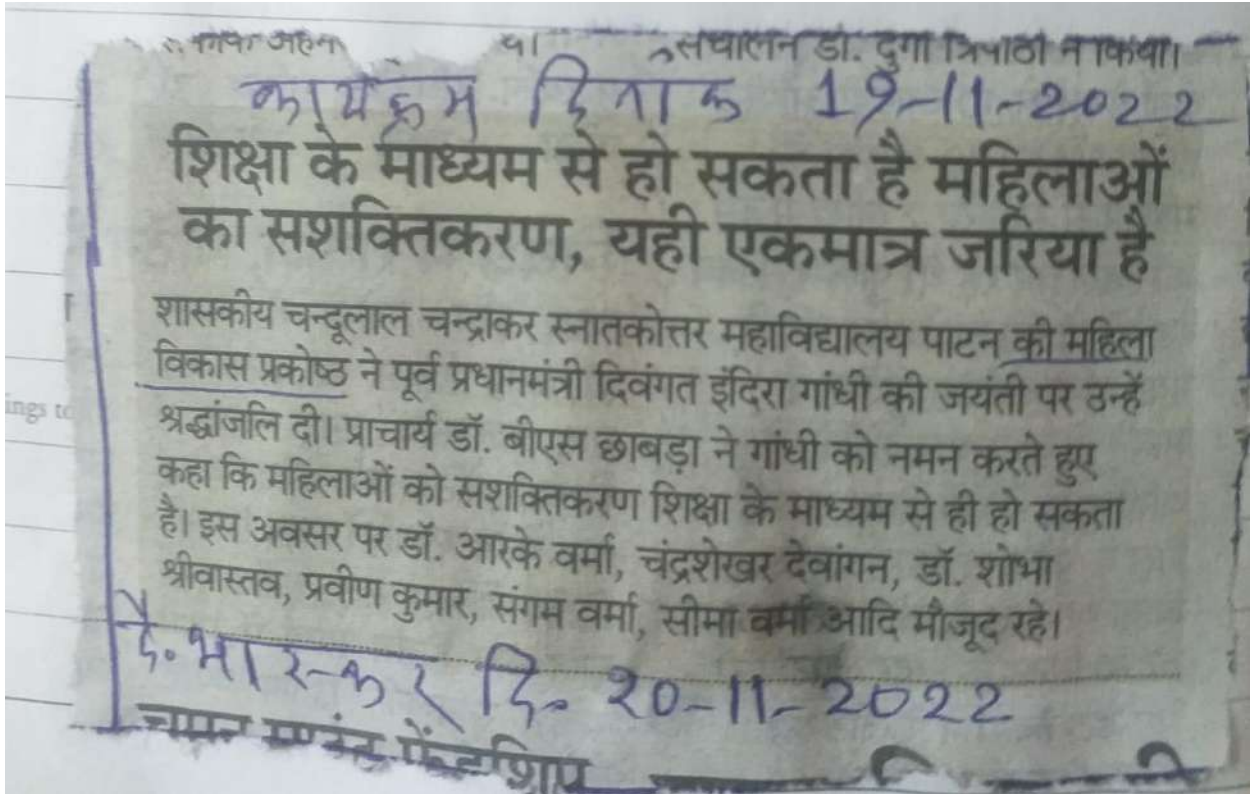 संचालन डॉ. दुर्गा त्रिपाठी ने किया।
कार्यक्रम दिनांक 19-11-2022
शिक्षा के माध्यम से हो सकता है महिलाओं
का सशक्तिकरण, यही एकमात्र जरिया है
शासकीय चन्दूलाल चन्द्राकर स्नातकोत्तर महाविद्यालय पाटन की महिला
विकास प्रकोष्ठ ने पूर्व प्रधानमंत्री दिवंगत इंदिरा गांधी की जयंती पर उन्हें
श्रद्धांजलि दी। प्राचार्य डॉ. बीएस छाबड़ा ने गांधी को नमन करते हुए
कहा कि महिलाओं को सशक्तिकरण शिक्षा के माध्यम से ही हो सकता
है। इस अवसर पर डॉ. आरके वर्मा, चंद्रशेखर देवांगन, डॉ. शोभा
श्रीवास्तव, प्रवीण कुमार, संगम वर्मा, सीमा वर्मा आदि मौजूद रहे।
दै. भास्कर दि. 20-11-2022
ings to